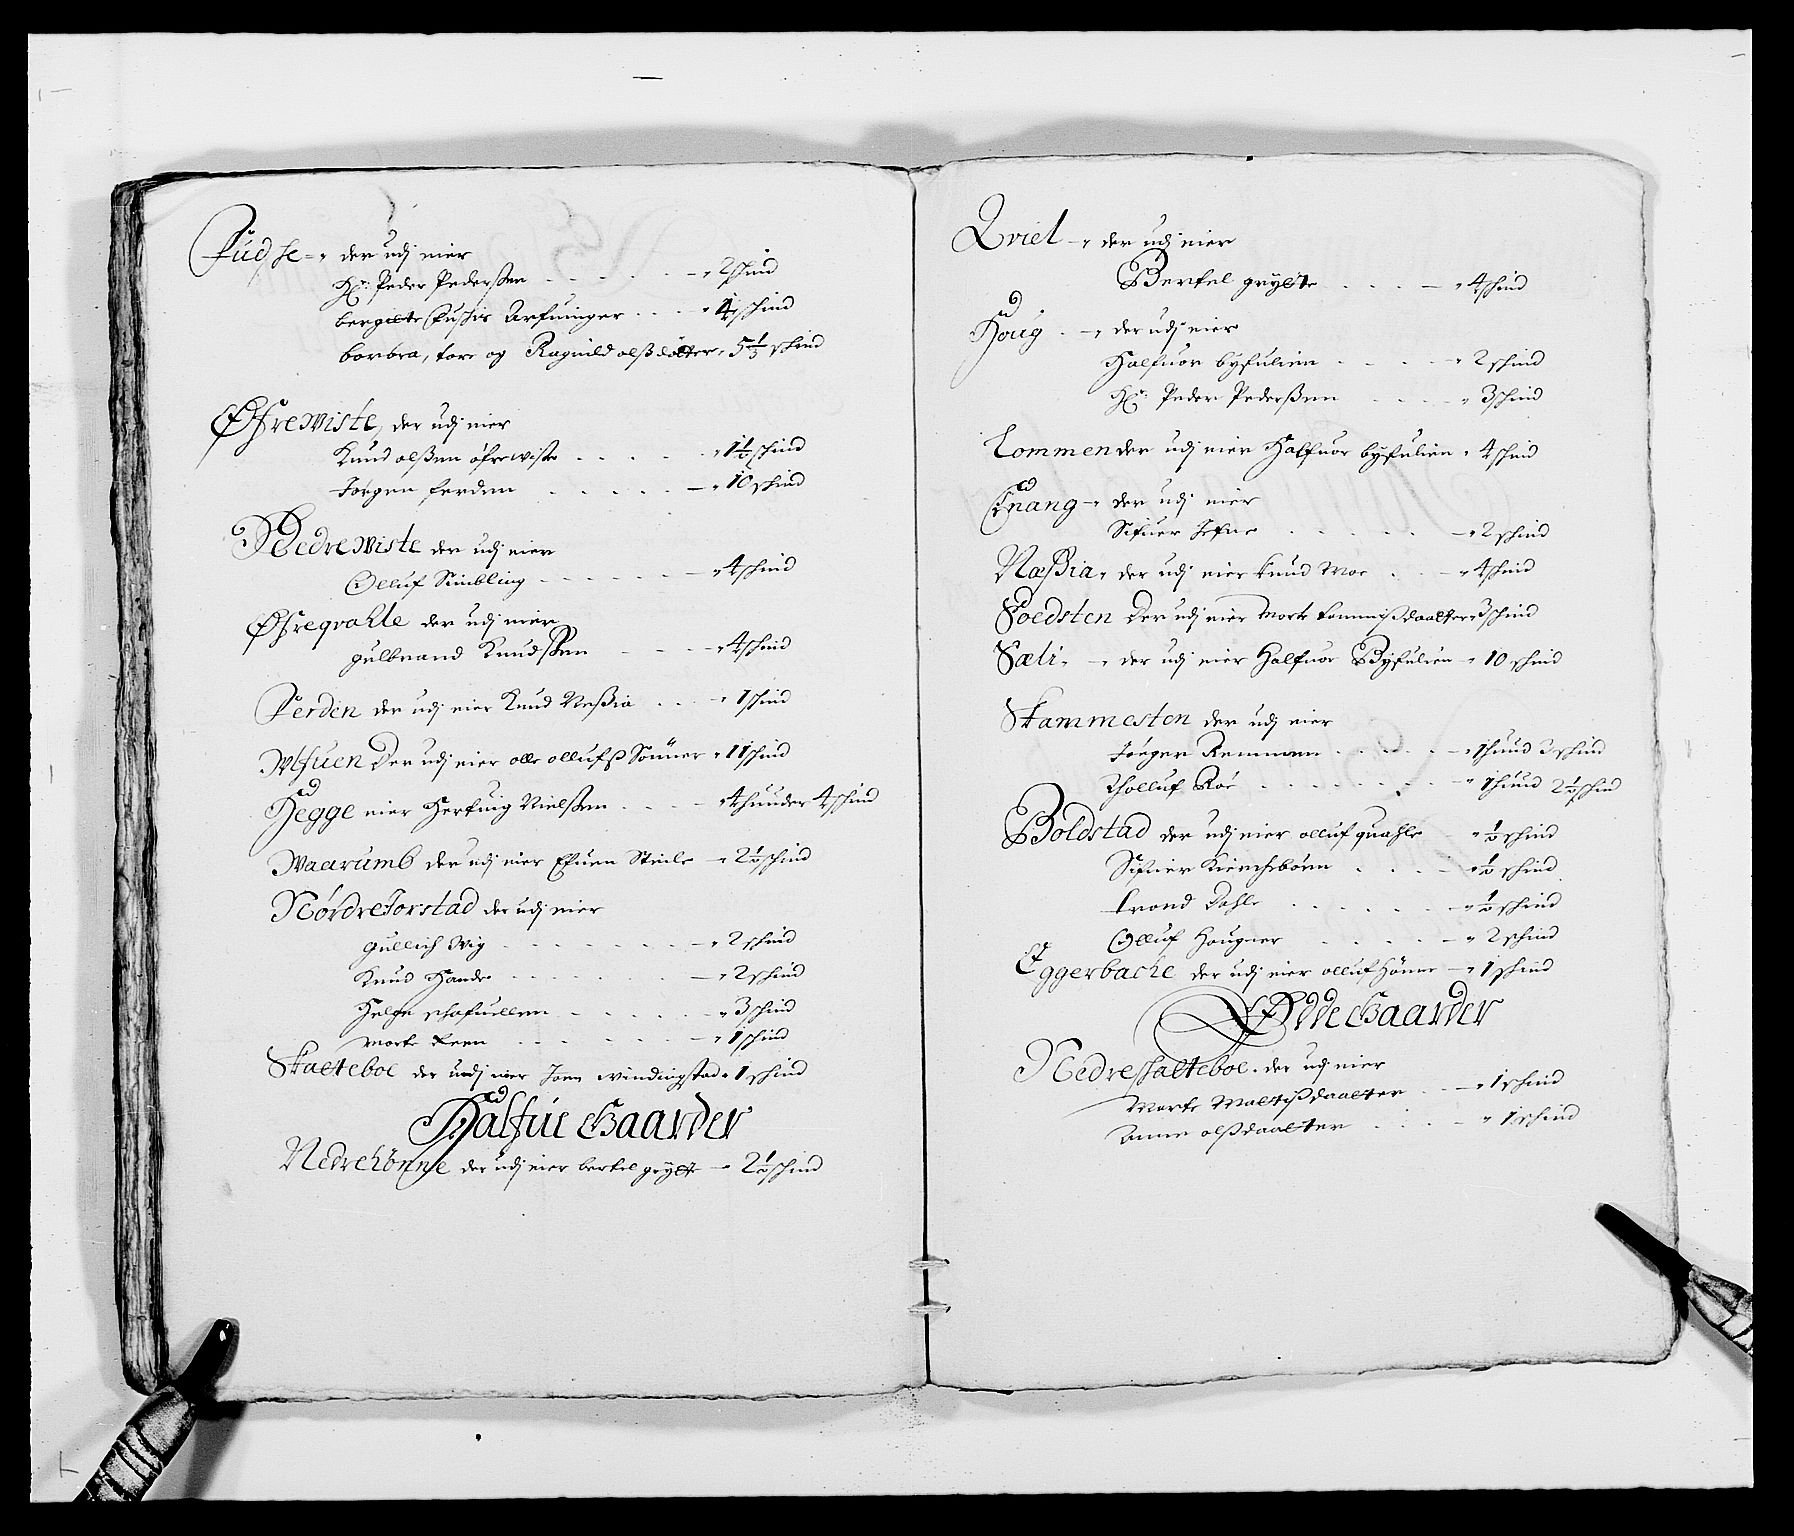 Fudse - der udj eier
Hr: Peder Pederßen - - - - - 2 schind
bergitte Fuschis Arfuinger - - - 4 schind
borbra, tore og Ragnild olß dotter, 5 1/3 schind
Øfrewiste, der udj eier
Knud olßen øfrewiste - - - - 1 1/2 schind
Jørgen ferden - - - - - 10 schind
Nedrewiste der udj eier
Olluf Smibling - - - - - 4 schind
Øfreqvahle der udj eier
gulbrand Knudßen - - - - 4 schind
Ferden der udj eier Knud Neßia - - - 1 schind
Wlfuen Der udj eier olle ollufß Sønner 11 schind
Hegge eier Hertuig Nielßen - - - 4 hunder 4 schind
Waarumb der udj eier Efuen Steile - 2 1/2 schind
Nørdre Jorstad der udj eier
gullich Wig - - - - - - 2 schind
Knud Hande - - - - - - 2 schind
Helge schafuellen - - - - - 3 schind
Marte Reen - - - - - - 1 schind
Skatteboe der udj eier Joen windingstad 1 schind
Halfue Gaarder
Nedrehønne der udj eier bertel grytte - 2 1/2 schind
Qviel - der udj eier
Bertel grytte - - - - 4 schind
Houg - der udj eier
Halfuor byfulien - - - - 2 schind
Hr: Peder Pederßen - - - - 3 schind
Lommen der udj eier Halfuor byfulien 4 schind
Qvang - der udj eier
Sifuer Jefne - - - - - 2 schind
Næßia - der udj eier Knud Moe - - 4 schind
Soedsten Der udj eier Marte tommißdaatter 3 schind
Sæli - - der udj eier Halfuor Byfulien - 10 schind
Skammesten der udj eier
Jørgen Remmen - - - - - 1 hund 2 schind
Tholluf Roe - - - - - - 1 hund 2 1/2 schind
Boldstad der udj eier olluf quahle 1/2 schind
Sifuer Kierchebøen - - - - 1/2 schind
trond Dahle - - - - - 1/2 schind
Olluf Hougner - - - - 2 schind
Eggerbache der udj eier olluf Hønne - 1 schind
Ødde Gaarder
Nedreschatteboe - der udj eier
Marte Mattißdaatter - - - 1 schind
Anne olßdaatter - - - - 1 schind